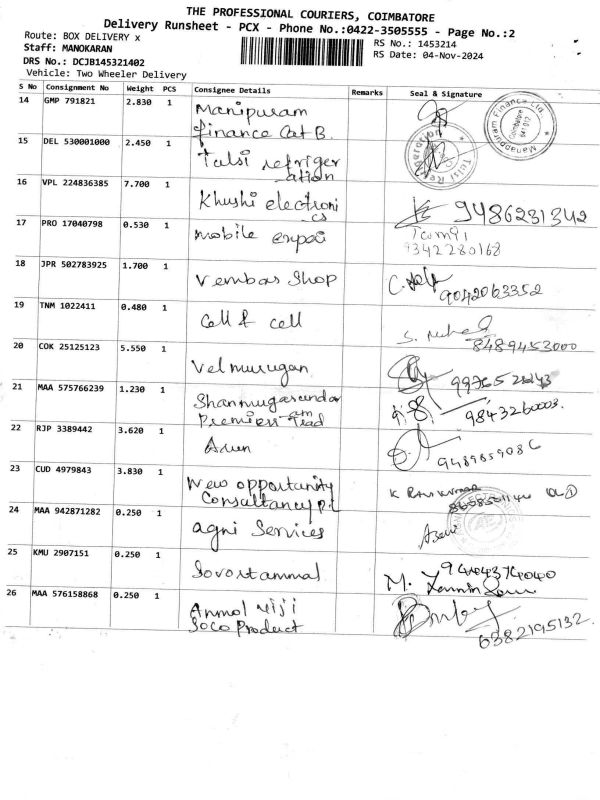 THE PROFESSIONAL COURIERS, COIMBATORE
Delivery Runsheet - PCX - Phone No.:0422-3505555 - Page No.:2
Route: BOX DELIVERY x
RS No.: 1453214
Staff: MANOKARAN
RS Date: 04-Nov-2024
DRS No.: DCJB145321402
Vehicle: Two Wheeler Delivery
S No Consignment No Weight PCS Consignee Details Remarks Seal & Signature
14 GMP 791821 2.830 1 Manipuram
finance Cat B.
Manappuram Finance Ltd.
Coimbatore
641 012
15 DEL 530001000 2.450 1 Tulsi refriger
ation
Tulsi Refrigeration
16 VPL 224836385 7.700 1 Khushi electroni
cs
9486231342
17 PRO 17040798 0.530 1 mobile
9342280168
18 JPR 502783925 1.700 1 Vembas Shop
9042063352
19 TNM 1022411 0.480 1 Cell & cell
8489453000
20 COK 25125123 5.550 1 Velmurugan
21 MAA 575766239 1.230 1 Shanmugasundar
am
Premier Trad
9843260003.
22 RJP 3389442 3.620 1 Arun
23 CUD 4979843 3.830 1 New opportunity
Consultancy P.L
24 MAA 942871282 0.250 1 agni Services
25 KMU 2907151 0.250 1
9404374040
26 MAA 576158868 0.250 1 Anmol
Soco Product
6382195132.